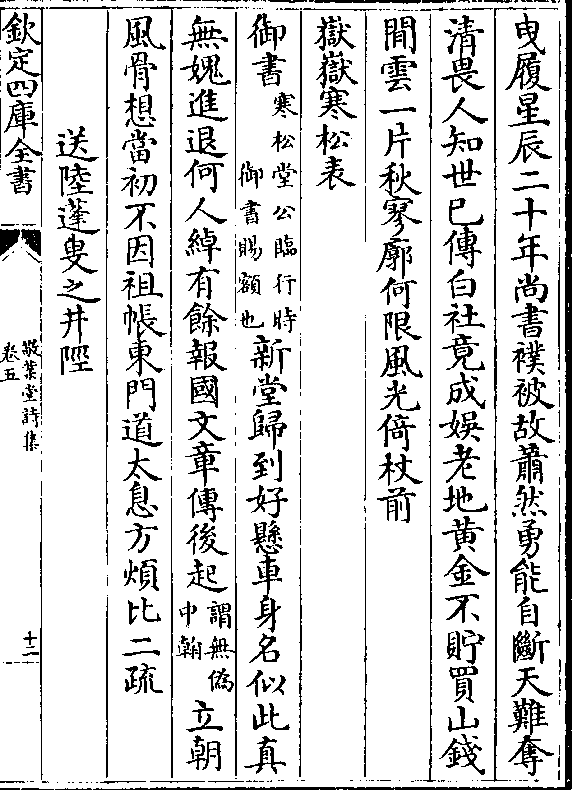 曳履星辰二十年尚書襆被故蕭然勇能自斷天難奪
清畏人知世已傳白社竟成娱老地黄金不貯買山錢
閒雲一片秋寥廓何限風光倚杖前
嶽嶽寒松表
御書寒松堂公臨行時御書賜額也新堂歸到好懸車身名似此真
無媿進退何人綽有餘報國文章傳後起謂無偽中翰立朝
風骨想當初不因祖帳東門道太息方煩比二疏
送陸蓬叟之井陘
欽定四庫全書
敬業堂詩集
卷五
十二